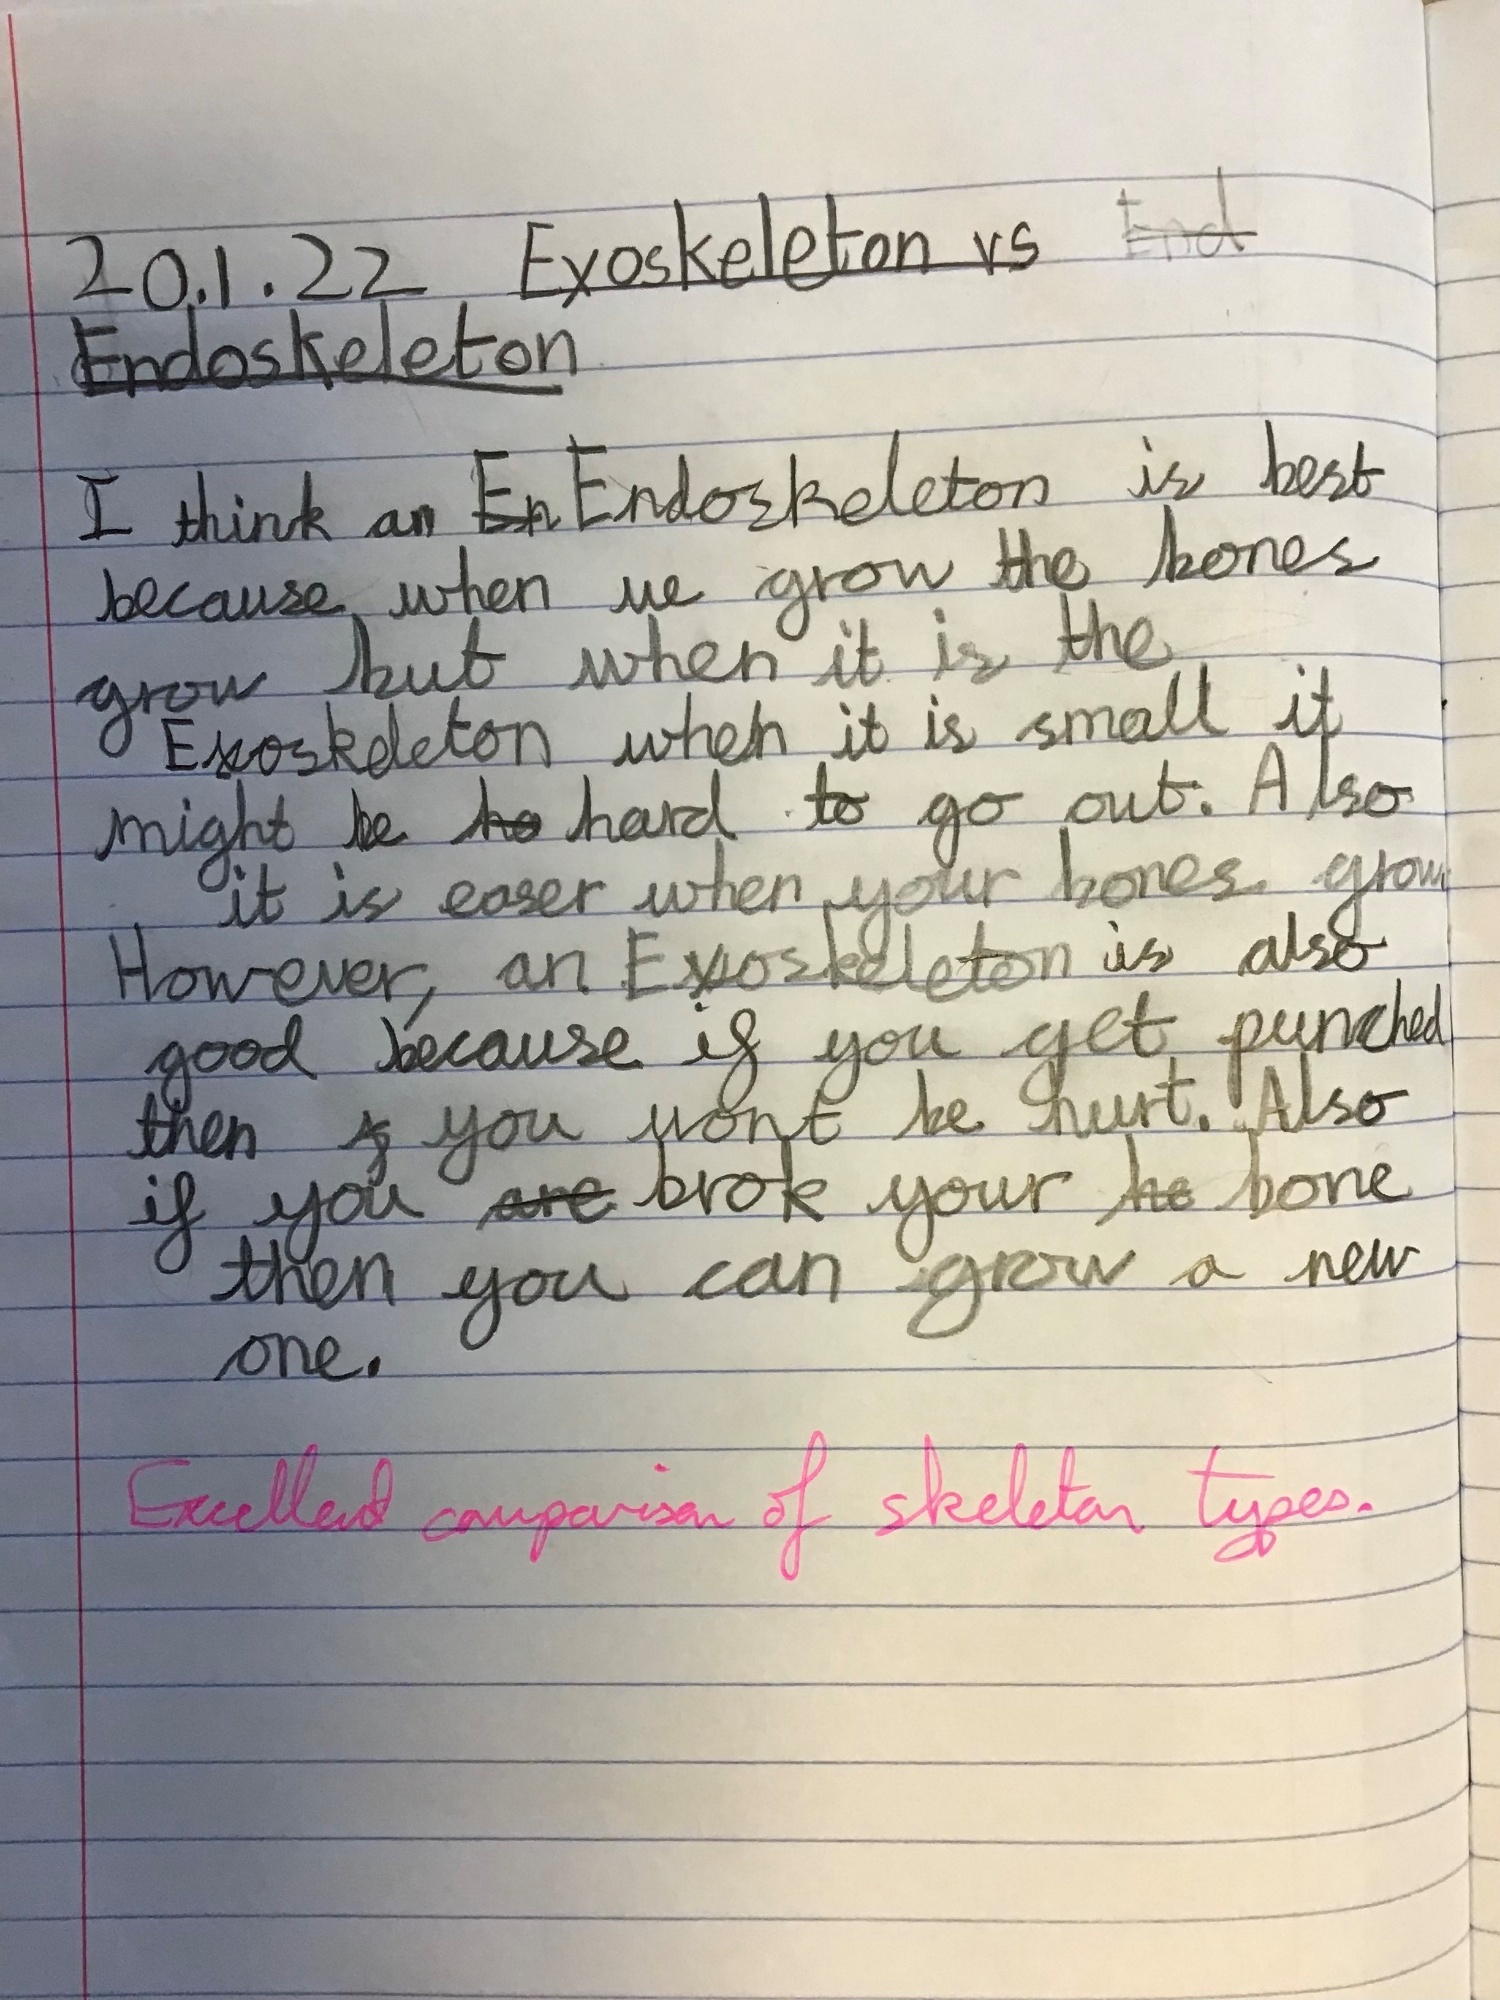 20.1.22 Exoskeleton vs End
Endoskeleton
I think an En Endoskeleton is best
because when we grow the bones
grow but when it is the
Exoskeleton when it is small it
might be ho hard to go out. Also
it is easer when your bones grow
However, an Exoskeleton is also
good because if you get punched
then you wont be hurt. Also
if you are brok your bone
then you can grow a new
one.
Excellent comparison of skeleton types.